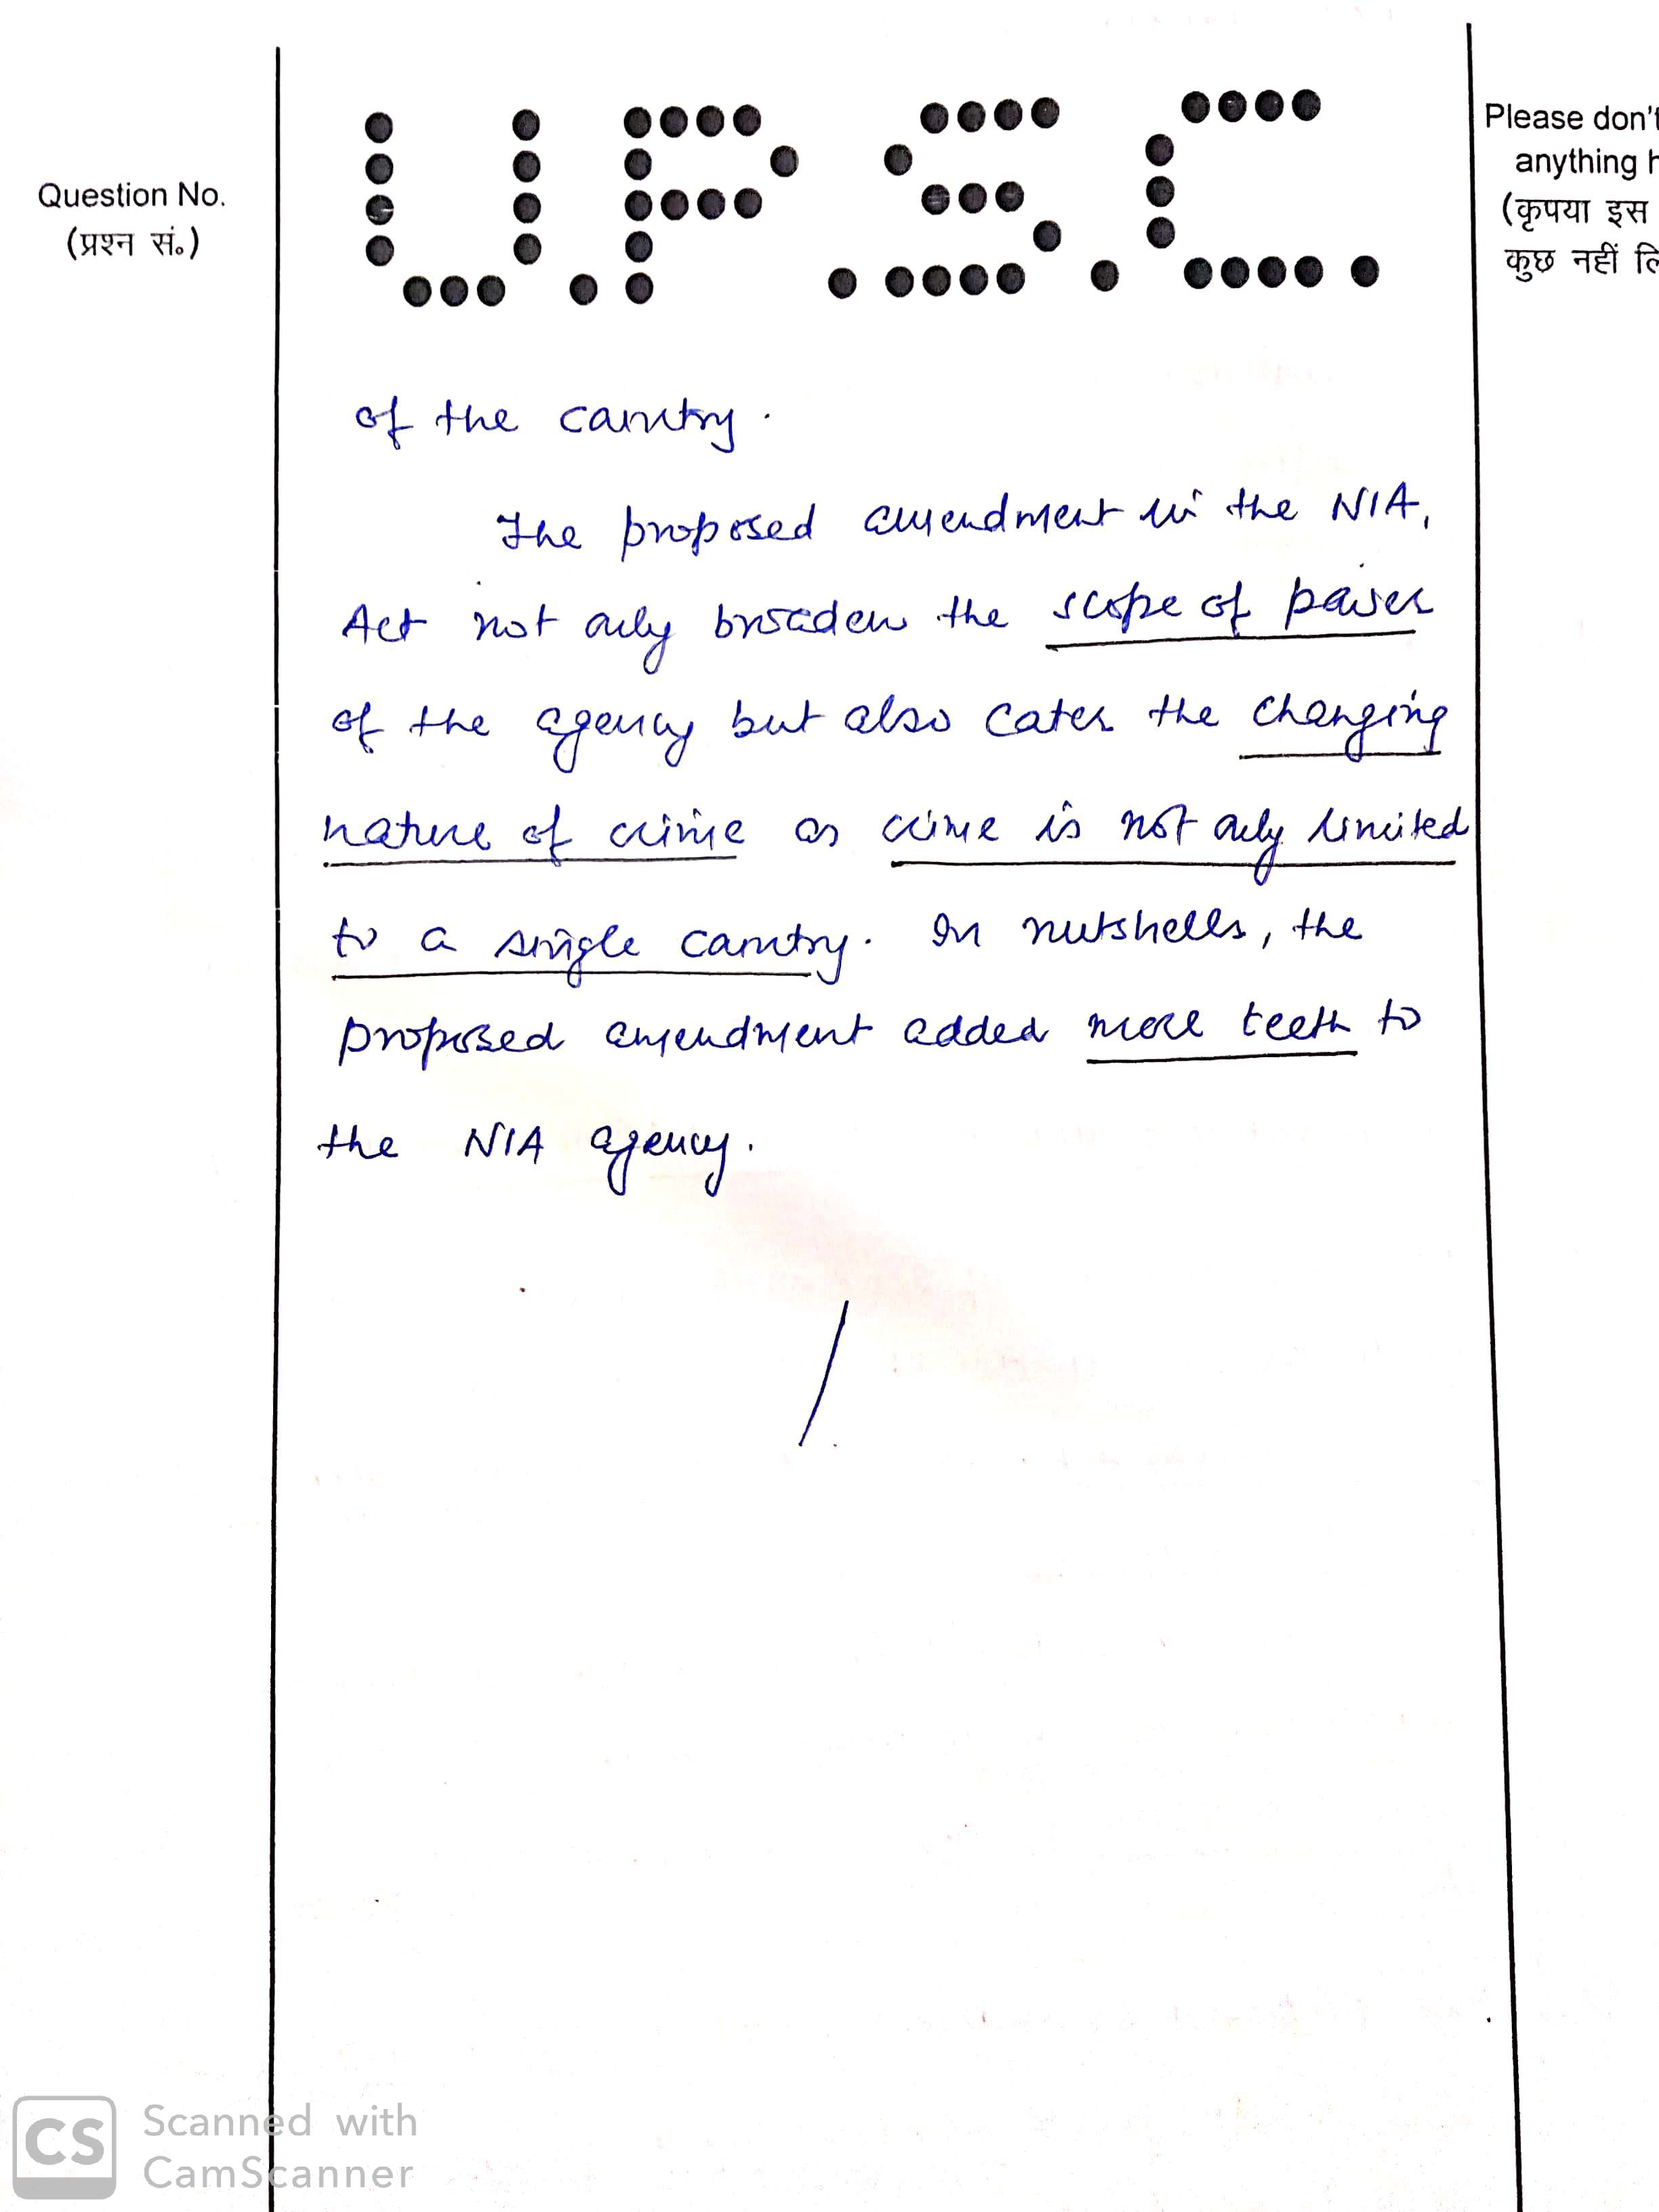 U.P.S.C.
Question No.
(प्रश्न सं.)
Please don't
anything
(कृपया इस
कुछ नहीं
of the country.
The proposed amendment in the NIA,
Act not only broaden the scope of power
of the agency but also cater the changing
nature of crime as crime is not only limited
to a single country. In nutshells, the
proposed amendment added more teeth to
the NIA agency.
CS
Scanned with
CamScanner